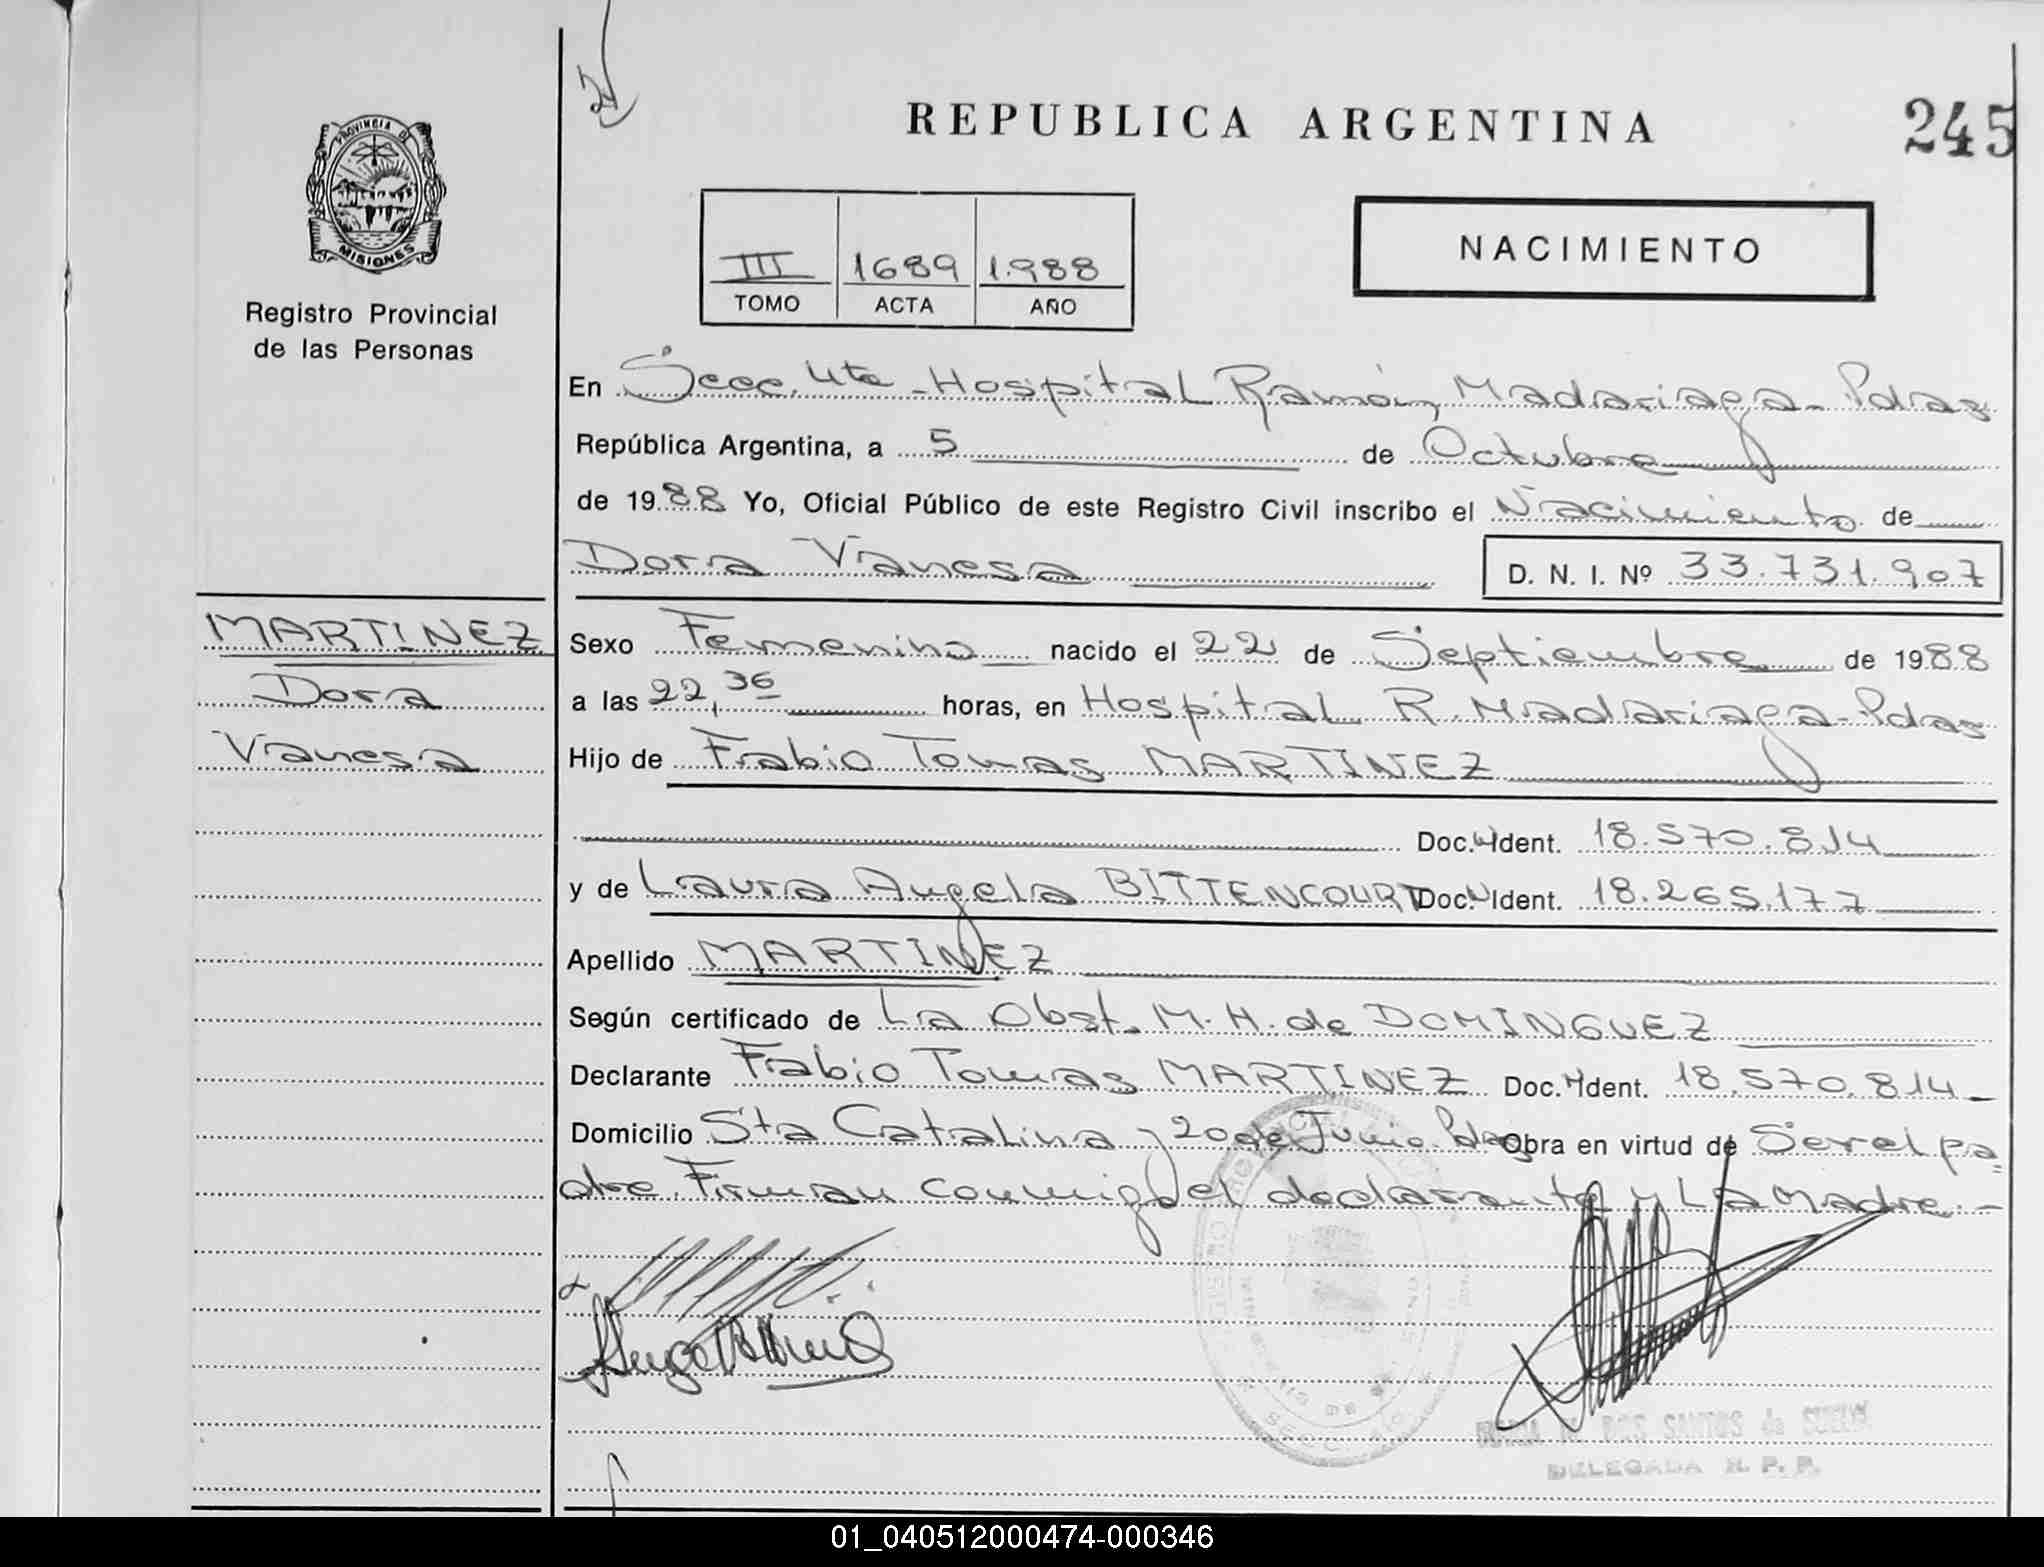 REPUBLICA ARGENTINA
245
PROVINCIA DE
MISIONES
Registro Provincial
de las Personas
III 1689 1.988
TOMO ACTA AÑO
NACIMIENTO
En Secc. 4ta - Hospital Ramón Madariaga - Pdas
República Argentina, a 5 de Octubre
de 1988 Yo, Oficial Público de este Registro Civil inscribo el Nacimiento de
Dora Vanesa D. N. I. Nº 33.731.907
MARTINEZ
Dora
Vanesa
Sexo Femenino nacido el 22 de Septiembre de 1988
a las 22,36 horas, en Hospital R. Madariaga - Pdas
Hijo de Fabio Tomas MARTINEZ
Doc. Ident. 18.570.814
y de Laura Angela BITTENCOURT Doc. Ident. 18.265.177
Apellido MARTINEZ
Según certificado de La Obst. M. H. de DOMINGUEZ
Declarante Fabio Tomas MARTINEZ Doc. Ident. 18.570.814 -
Domicilio Sta Catalina y 20 de Junio Pdas Obra en virtud de Ser el pa-
dre. Firman conmigo el declarante y La Madre. -
DOS SANTOS de
DELEGADA R. P. P.
01_040512000474-000346